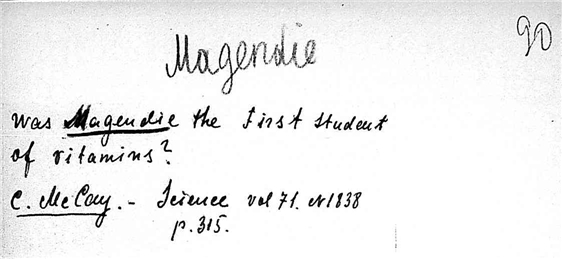 Magendie
90
Was Magendie the first student
of vitamins?
C. McCay. - Science vol 71. N1838
p. 315.